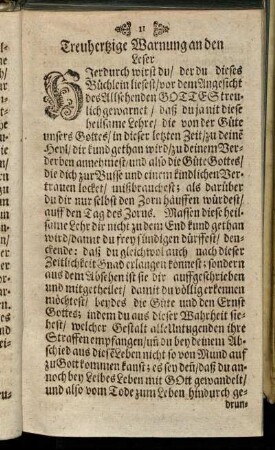 11
Treuhertzige Warnung an den
Leser
HJerdurch wirst du/ der du dieses
Büchlein liesest/ vor dem Angesicht
des Allsehenden GOTTES treu-
lich gewarnet/ daß du ja nit diese
heilsame Lehre/ die von der Güte
unsers Gottes/ in dieser letzten Zeit/ zu deinẽ
Heyl/ dir kund gethan wird/ zu deinem Ver-
derben annehmest/ und also die Güte Gottes/
die dich zur Busse und einem kindlichen Ver-
trauen locket/ mißbrauchest: als darüber
du dir nur selbst den Zorn häuffen würdest/
auff den Tag des Zorns. Massen diese heil-
same Lehr dir nicht zu dem End kund gethan
wird/ damit du frey sündigen dürffest/ den-
ckende: daß du gleichwol auch nach dieser
Zeitlichkeit Gnad erlangen könnest; sondern
aus dem Absehen ist sie dir auffgeschrieben
und mitgetheilet/ damit du völlig erkennen
möchtest/ beydes die Güte und den Ernst
Gottes; indem du aus dieser Wahrheit sie-
hest/ welcher Gestalt alle Unlugenden ihre
Straffen empfangen/ uñ du bey deinem Ab-
schied aus diesẽ Leben nicht so von Mund auf
zu Gott kommen kanst; es sey deñ/ daß du an-
noch bey Leibes Leben mit GOtt gewandelt/
und also vom Tode zum Leben hindurch ge-
drun-